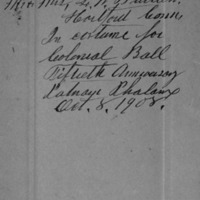 Mr. & Mrs. L. F.
Hartford Conn.
In costume for
Colonial Ball
Fiftieth Anniversary
Putnam Phalanx
Oct. 8, 1908.